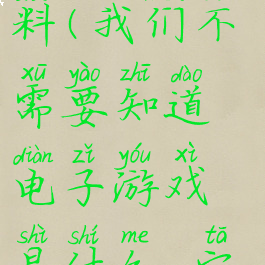 料(我们不
xū yào zhī dào
需要知道
diàn zǐ yóu xì
电子游戏
shì shí me tā